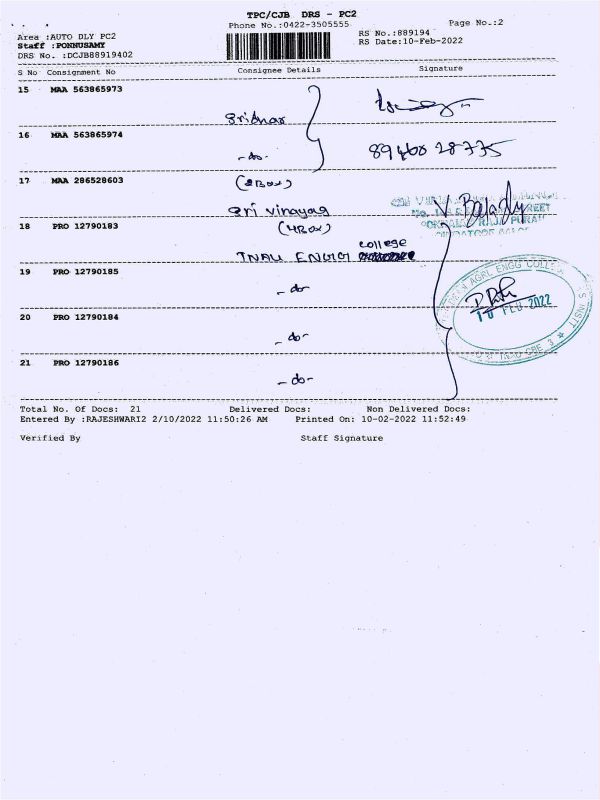 TPC/CJB DRS - PC2
Phone No.:0422-3505555 Page No.:2
Area :AUTO DLY PC2 RS No.:889194
Staff :PONNUSAMY RS Date:10-Feb-2022
DRS No. :DCJB88919402
S No Consignment No Consignee Details Signature
15 MAA 563865973
Sridhar
16 MAA 563865974 89400 28735
-do-
17 MAA 286528603 (2Box)
Sri Vinayag V. Balady
18 PRO 12790183 (4Box)
TNAU ENGG college
19 PRO 12790185 AGRL ENGG COLLEGE
-do- FEB 2022
20 PRO 12790184
-do-
21 PRO 12790186
-do-
Total No. Of Docs: 21 Delivered Docs: Non Delivered Docs:
Entered By :RAJESHWARI2 2/10/2022 11:50:26 AM Printed On: 10-02-2022 11:52:49
Verified By Staff Signature